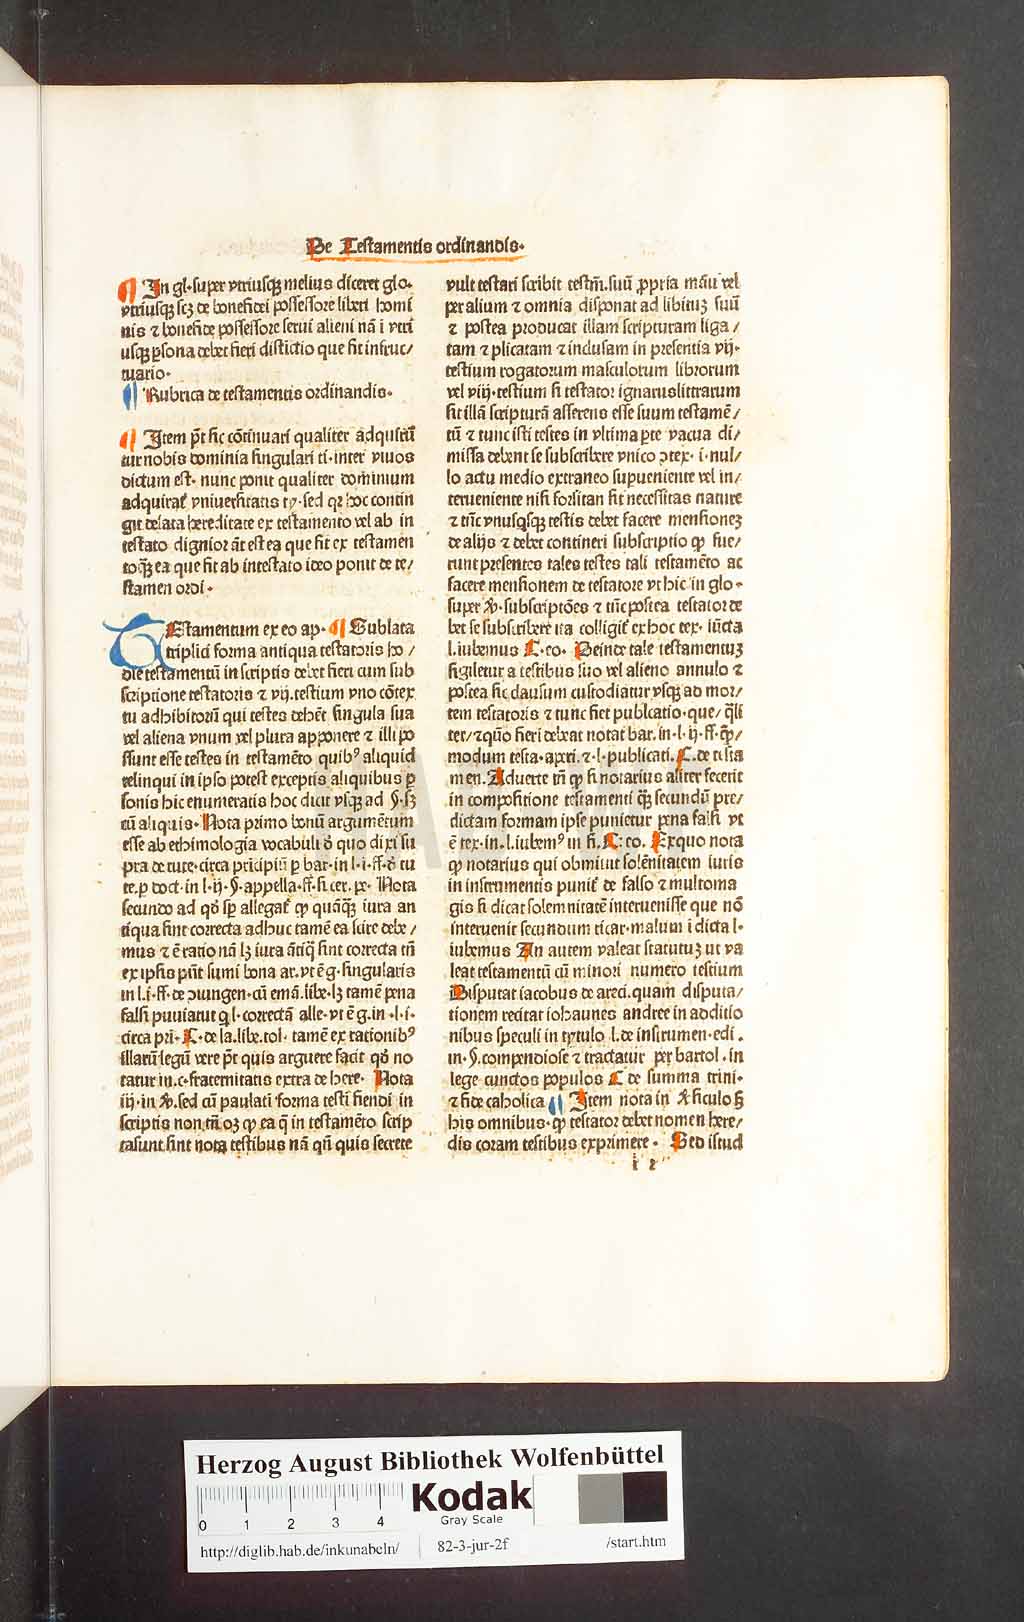 De Testamentis ordinandis.
¶ In gl. super vtriusqꝫ melius diceret glo.
vtriusqꝫ scꝫ de bonefidei possessore liberi homi
nis ⁊ bonefidei possessore serui alieni nā i vtri
usqꝫ ꝑsona debet fieri distictio que fit infruc/
tuario.
¶ Rubrica de testamentis ordinandis.
¶ Item pt̄ sic cōtinuari qualiter adquirū
tur nobis dominia singulari ti. inter viuos
dictum est. nunc ponit qualiter dominium
adquirat᷑ vniuersitatis ty. sed qꝛ hoc contin
git delata hereditate ex testamento vel ab in
testato dignior āt est ea que fit ex testamen
to qꝫ̄ ea que fit ab intestato ideo ponit de te/
stamen ordi.
TEstamentum ex eo ap. ¶ Sublata
triplici forma antiqua testatoris ho /
die testamentū in scriptis debet fieri cum sub
scriptione testatoris ⁊ vij. testium vno cōtex
tu adhibitorū qui testes debēt singula sua
vel aliena vnum vel plura apponere ⁊ illi po
ssunt esse testes in testamēto quibꝰ aliquid
relinqui in ipso potest exceptis aliquibus ꝑ
sonis hic enumeratis hoc dicit vsqꝫ ad §. sꝫ
cū aliquis. Nota primo bonū argumētum
esse ab ethimologia vocabuli d̄ quo dixi su
pra de iure. circa pricipiū ꝑ bar. in l. i. ff. d̄ iu
re. ꝑ doct. in l. ij. §. appella. ff. si cer. pe. Nota
secundo ad qd̄ sꝑ allegat᷑ ꝙ quāqꝫ̄ iura an
tiqua sint correcta adhuc tamē ea scire debe /
mus ⁊ ē ratio nā lꝫ iura ātiq̄ sint correcta tn̄
ex ipsis pn̄t sumi bona ar. vt ē g. singularis
in l. i. ff. de ꝯiungen. cū emā. libe. lꝫ tamē pena
falsi puniatur q̇ l. correctā alle. vt ē g. in .l. i.
circa pri. C. de la. libe. tol. tamē ex rationibꝰ
illarū legū vere pt̄ quis arguere facit qd̄ no
tatur in. c. fraternitatis extra de here. Nota
iij. in ℣. sed cū paulati forma testi fiendi in
scriptis non tm̄ oꝫ ꝙ ea q̄ in testamēto scrip
ta sunt sint nota testibus nā qn̄ quis secrete
vult testari scribit testm̄. suū ꝓpria māu vel
per alium ⁊ omnia disponat ad libituꝫ suū
⁊ postea producat illam scripturam liga /
tam ⁊ plicatam ⁊ inclusam in presentia vij.
testium rogatorum masculorum librorum
vel viij. testium si testator ignarus litrarum
sit illā scripturā asserens esse suum testamē/
tū ⁊ tunc isti testes in vltima ꝑte vacua di/
missa debent se subscribere vnico ꝯtex. i. nul/
lo actu medio extraneo supueniente vel in/
terueniente nisi forsitan sit necessitas nature
⁊ tūc vnusqsqꝫ testis debet facere mensioneꝫ
de alijs ⁊ debet contineri subscriptio ꝙ fue/
runt presentes tales testes tali testamēto ac
facere mensionem de testatore vt hic in glo.
super ℣. subscriptōes ⁊ tūc postea testator de
bet se subscribere ita colligit᷑ ex hoc tex. iūcta
l. iubemus C. eo. Deinde tale testamentuꝫ
sigiletur a testibus suo vel alieno annulo ⁊
postea sic clausum custodiatur vsqꝫ ad mor/
tem testatoris ⁊ tunc fiet publcatio. que/ q̄li
ter/ ⁊ quō fieri debeat notat bar. in. l. ij. ff. q̄ꝫ/
modum testa. aperi. ⁊. l. publicati. C. de testa
men. Aduerte tn̄ ꝙ si notarius aliter fecerit
in compositione testamenti qꝫ̄ secundū pre/
dictam formam ipse punietur pena falsi vt
ē tex. in. l. iubemꝰ in fi. C. eo. Ex quo nota
ꝙ notarius qui obmittit solēnitatem iuris
in instrumentis punit᷑ de falso ⁊ multoma
gis si dicat solemnitatē interuenisse que nō
interuenit secundum ricar. malum i dicta l.
iubemus An autem valeat statutuꝫ ut va
leat testamentū cū minori numero testium
Disputat iacobus de areci. quam disputa/
tionem recitat iohannes andree in additio
nibus speculi in tytulo l. de instrumen. edi .
in. §. compendiose ⁊ tractatur per bartol. in
lege cunctos populos C de summa trini.
⁊ fide catholica ¶ Item nota in ℣ siculo ꝫ
his omnibus. ꝙ testator debet nomen here/
dis coram testibus exprimere. Sed istud
Herzog August Bibliothek Wolfenbüttel
0 1 2 3 4
Kodak
Gray Scale
http://diglib.hab.de/inkunabeln/ 82-3-jur-2f /start.htm